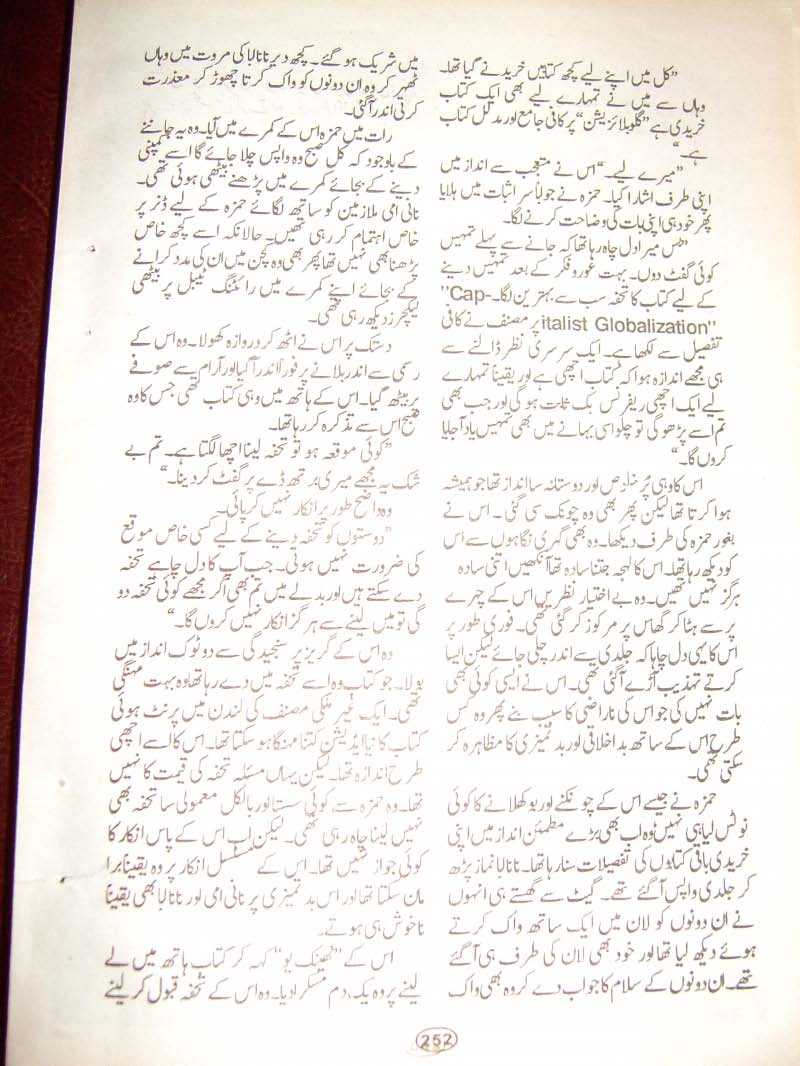 ”کل میں اپنے لیے کچھ کتابیں خریدنے گیا تھا۔
وہاں سے میں نے تمہارے لیے بھی ایک کتاب
خریدی ہے ”گلوبلائزیشن“ پر کافی جامع اور مدلل کتاب
ہے۔“
”میرے لیے۔“ اس نے متعجب سے انداز میں
اپنی طرف اشارا کیا۔ حمزہ نے جواباً سر اثبات میں ہلایا
پھر خود ہی اپنی بات کی وضاحت کرنے لگا۔
”بس میرا دل چاہ رہا تھا کہ جانے سے پہلے تمہیں
کوئی گفٹ دوں۔ بہت غور و فکر کے بعد تمہیں دینے
کے لیے کتاب کا تحفہ سب سے بہترین لگا۔ "Cap-
italist Globalization" پر مصنف نے کافی
تفصیل سے لکھا ہے۔ ایک سرسری نظر ڈالنے سے
ہی مجھے اندازہ ہوا کہ کتاب اچھی ہے اور یقیناً تمہارے
لیے ایک اچھی ریفرنس بک ثابت ہوگی اور جب بھی
تم اسے پڑھو گی تو چلو اسی بہانے میں بھی تمہیں یاد آجایا
کروں گا۔“
اس کا وہی پُر خلوص اور دوستانہ سا انداز تھا جو ہمیشہ
ہوا کرتا تھا لیکن پھر بھی وہ چونک سی گئی۔ اس نے
بغور حمزہ کی طرف دیکھا۔ وہ بھی گہری نگاہوں سے اس
کو دیکھ رہا تھا۔ اس کا لہجہ جتنا سادہ تھا آنکھیں اتنی سادہ
ہرگز نہیں تھیں۔ وہ بے اختیار نظریں اس کے چہرے
پر سے ہٹا کر گھاس پر مرکوز کر گئی تھی۔ فوری طور پر
اس کا یہی دل چاہا کہ جلدی سے اندر چلی جائے لیکن ایسا
کرتے تہذیب آڑے آگئی تھی۔ اس نے ایسی کوئی بھی
بات نہیں کی جو اس کی ناراضی کا سبب بنے پھر وہ کس
طرح اس کے ساتھ بد اخلاقی اور بد تمیزی کا مظاہرہ کر
سکتی تھی۔
حمزہ نے جیسے اس کے چونکنے اور بوکھلانے کا کوئی
نوٹس لیا ہی نہیں وہ اب بھی بڑے مطمئن انداز میں اپنی
خریدی باقی کتابوں کی تفصیلات سنا رہا تھا۔ نانا ابا نماز پڑھ
کر جلدی واپس آگئے تھے۔ گیٹ سے گھستے ہی انہوں
نے ان دونوں کو لان میں ایک ساتھ واک کرتے
ہوئے دیکھ لیا تھا اور خود بھی لان کی طرف ہی آگئے
تھے۔ ان دونوں کے سلام کا جواب دے کر وہ بھی واک
میں شریک ہو گئے۔ کچھ دیر نانا ابا کی مروت میں وہاں
ٹھہر کر وہ ان دونوں کو واک کرتا چھوڑ کر معذرت
کرتی اندر آگئی۔
رات میں حمزہ اس کے کمرے میں آیا۔ وہ یہ جاننے
کے باوجود کہ کل صبح وہ واپس چلا جائے گا اسے کمپنی
دینے کے بجائے کمرے میں پڑھنے بیٹھی ہوئی تھی۔
نانی امی ملازمین کو ساتھ لگائے حمزہ کے لیے ڈنر پر
خاص اہتمام کر رہی تھیں۔ حالانکہ اسے کچھ خاص
پڑھنا بھی نہیں تھا پھر بھی وہ کچن میں ان کی مدد کرانے
کے بجائے اپنے کمرے میں رائٹنگ ٹیبل پر بیٹھی
لیکچرز دیکھ رہی تھی۔
دستک پر اس نے اٹھ کر دروازہ کھولا۔ وہ اس کے
رسمی سے اندر بلانے پر فوراً اندر آگیا اور آرام سے صوفے
پر بیٹھ گیا۔ اس کے ہاتھ میں وہی کتاب تھی جس کا وہ
صبح اس سے تذکرہ کر رہا تھا۔
”کوئی موقعہ ہو تو تحفہ لینا اچھا لگتا ہے۔ تم بے
شک یہ مجھے میری برتھ ڈے پر گفٹ کر دینا۔“
وہ واضح طور پر انکار نہیں کر پائی۔
”دوستوں کو تحفہ دینے کے لیے کسی خاص موقع
کی ضرورت نہیں ہوتی۔ جب آپ کا دل چاہے تحفہ
دے سکتے ہیں اور بدلے میں تم بھی اگر مجھے کوئی تحفہ دو
گی تو میں لینے سے ہرگز انکار نہیں کروں گا۔“
وہ اس کے گریز پر سنجیدگی سے دو ٹوک انداز میں
بولا۔ جو کتاب وہ اسے تحفہ میں دے رہا تھا وہ بہت مہنگی
تھی۔ ایک غیر ملکی مصنف کی لندن میں پرنٹ ہوئی
کتاب کا نیا ایڈیشن کتنا مہنگا ہو سکتا تھا۔ اس کا اسے اچھی
طرح اندازہ تھا۔ لیکن یہاں مسئلہ تحفہ کی قیمت کا نہیں
تھا۔ وہ حمزہ سے کوئی سستا اور بالکل معمولی سا تحفہ بھی
نہیں لینا چاہ رہی تھی۔ لیکن اب اس کے پاس انکار کا
کوئی جواز نہیں تھا۔ اس کے مسلسل انکار پر وہ یقیناً برا
مان سکتا تھا اور اس بد تمیزی پر نانی امی اور نانا ابا بھی یقیناً
ناخوش ہی ہوتے۔
اس کے ”تھینک یو“ کہہ کر کتاب ہاتھ میں لے
لینے پر وہ یک دم مسکرا دیا۔ وہ اس کے تحفہ قبول کر لینے
252